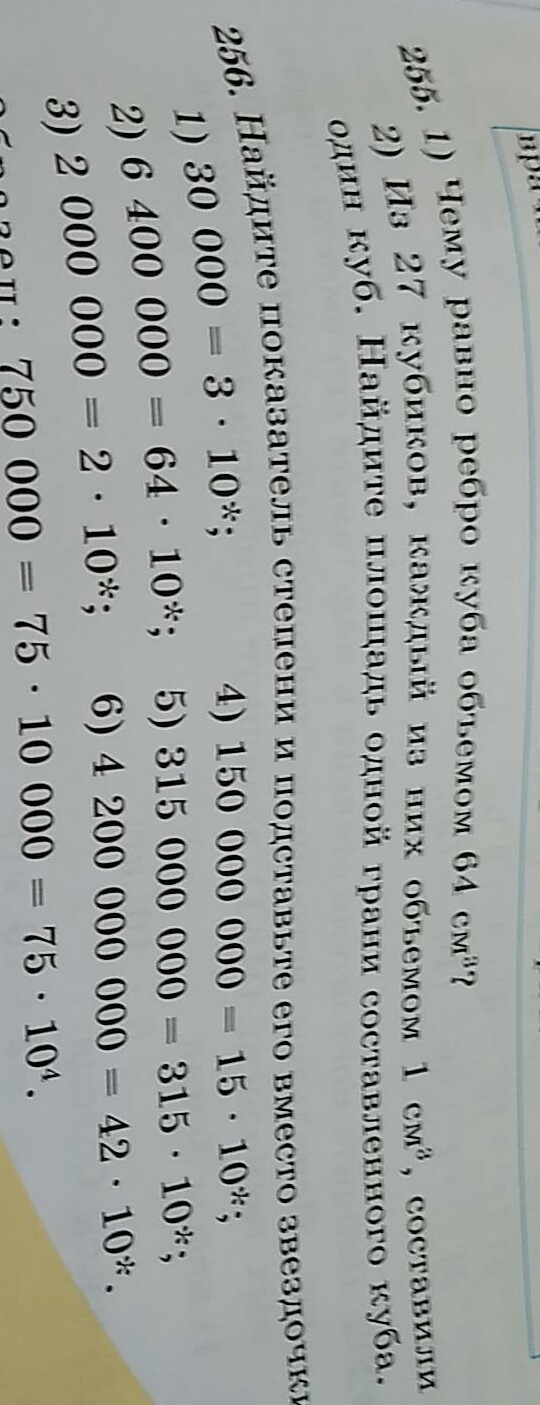 255. 1) Чему равно ребро куба объемом 64 см³?
2) Из 27 кубиков, каждый из них объемом 1 см³, составили
один куб. Найдите площадь одной грани составленного куба.
256. Найдите показатель степени и подставьте его вместо звездочки
1) 30 000 = 3 · 10*; 4) 150 000 000 = 15 · 10*;
2) 6 400 000 = 64 · 10*; 5) 315 000 000 = 315 · 10*;
3) 2 000 000 = 2 · 10*; 6) 4 200 000 000 = 42 · 10*.
750 000 = 75 · 10 000 = 75 · 10⁴.